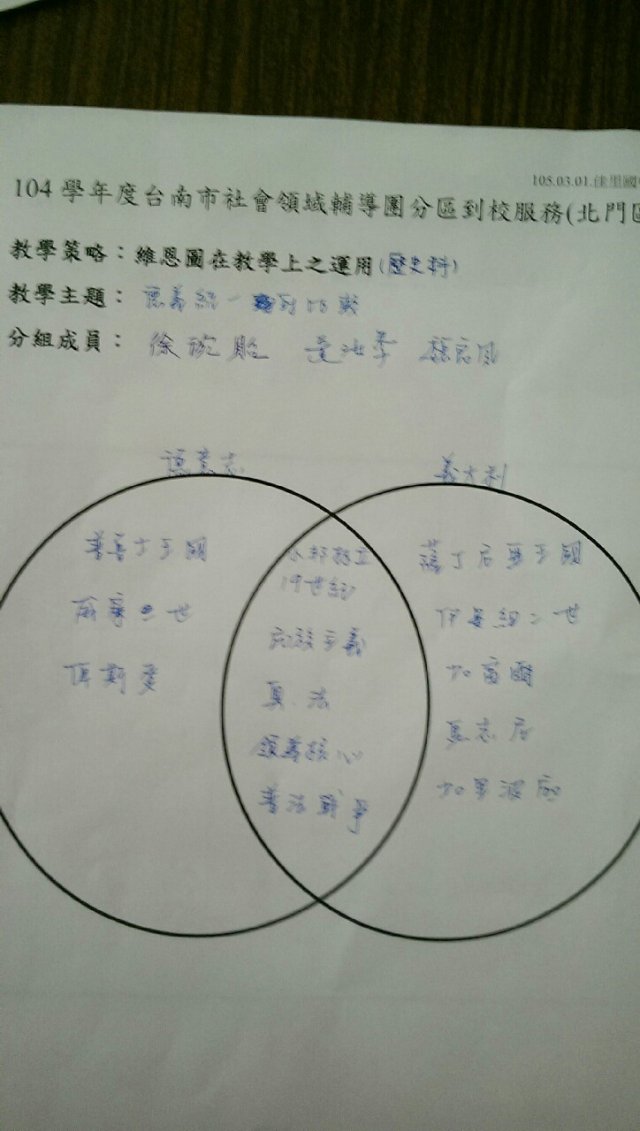 105.03.01.佳里國
104 學年度台南市社會領域輔導團分區到校服務(北門區
教學策略：維恩圖在教學上之運用(歷史科)
教學主題：德義統一 對比較
分組成員：徐琬 黃
德意志 義大利
普魯士王國 邦獨立 薩丁尼亞王國
19世紀
威廉一世 民族主義 伊曼紐二世
俾斯麥 奧、法 加富爾
領導核心 馬志尼
普法戰爭 加里波底